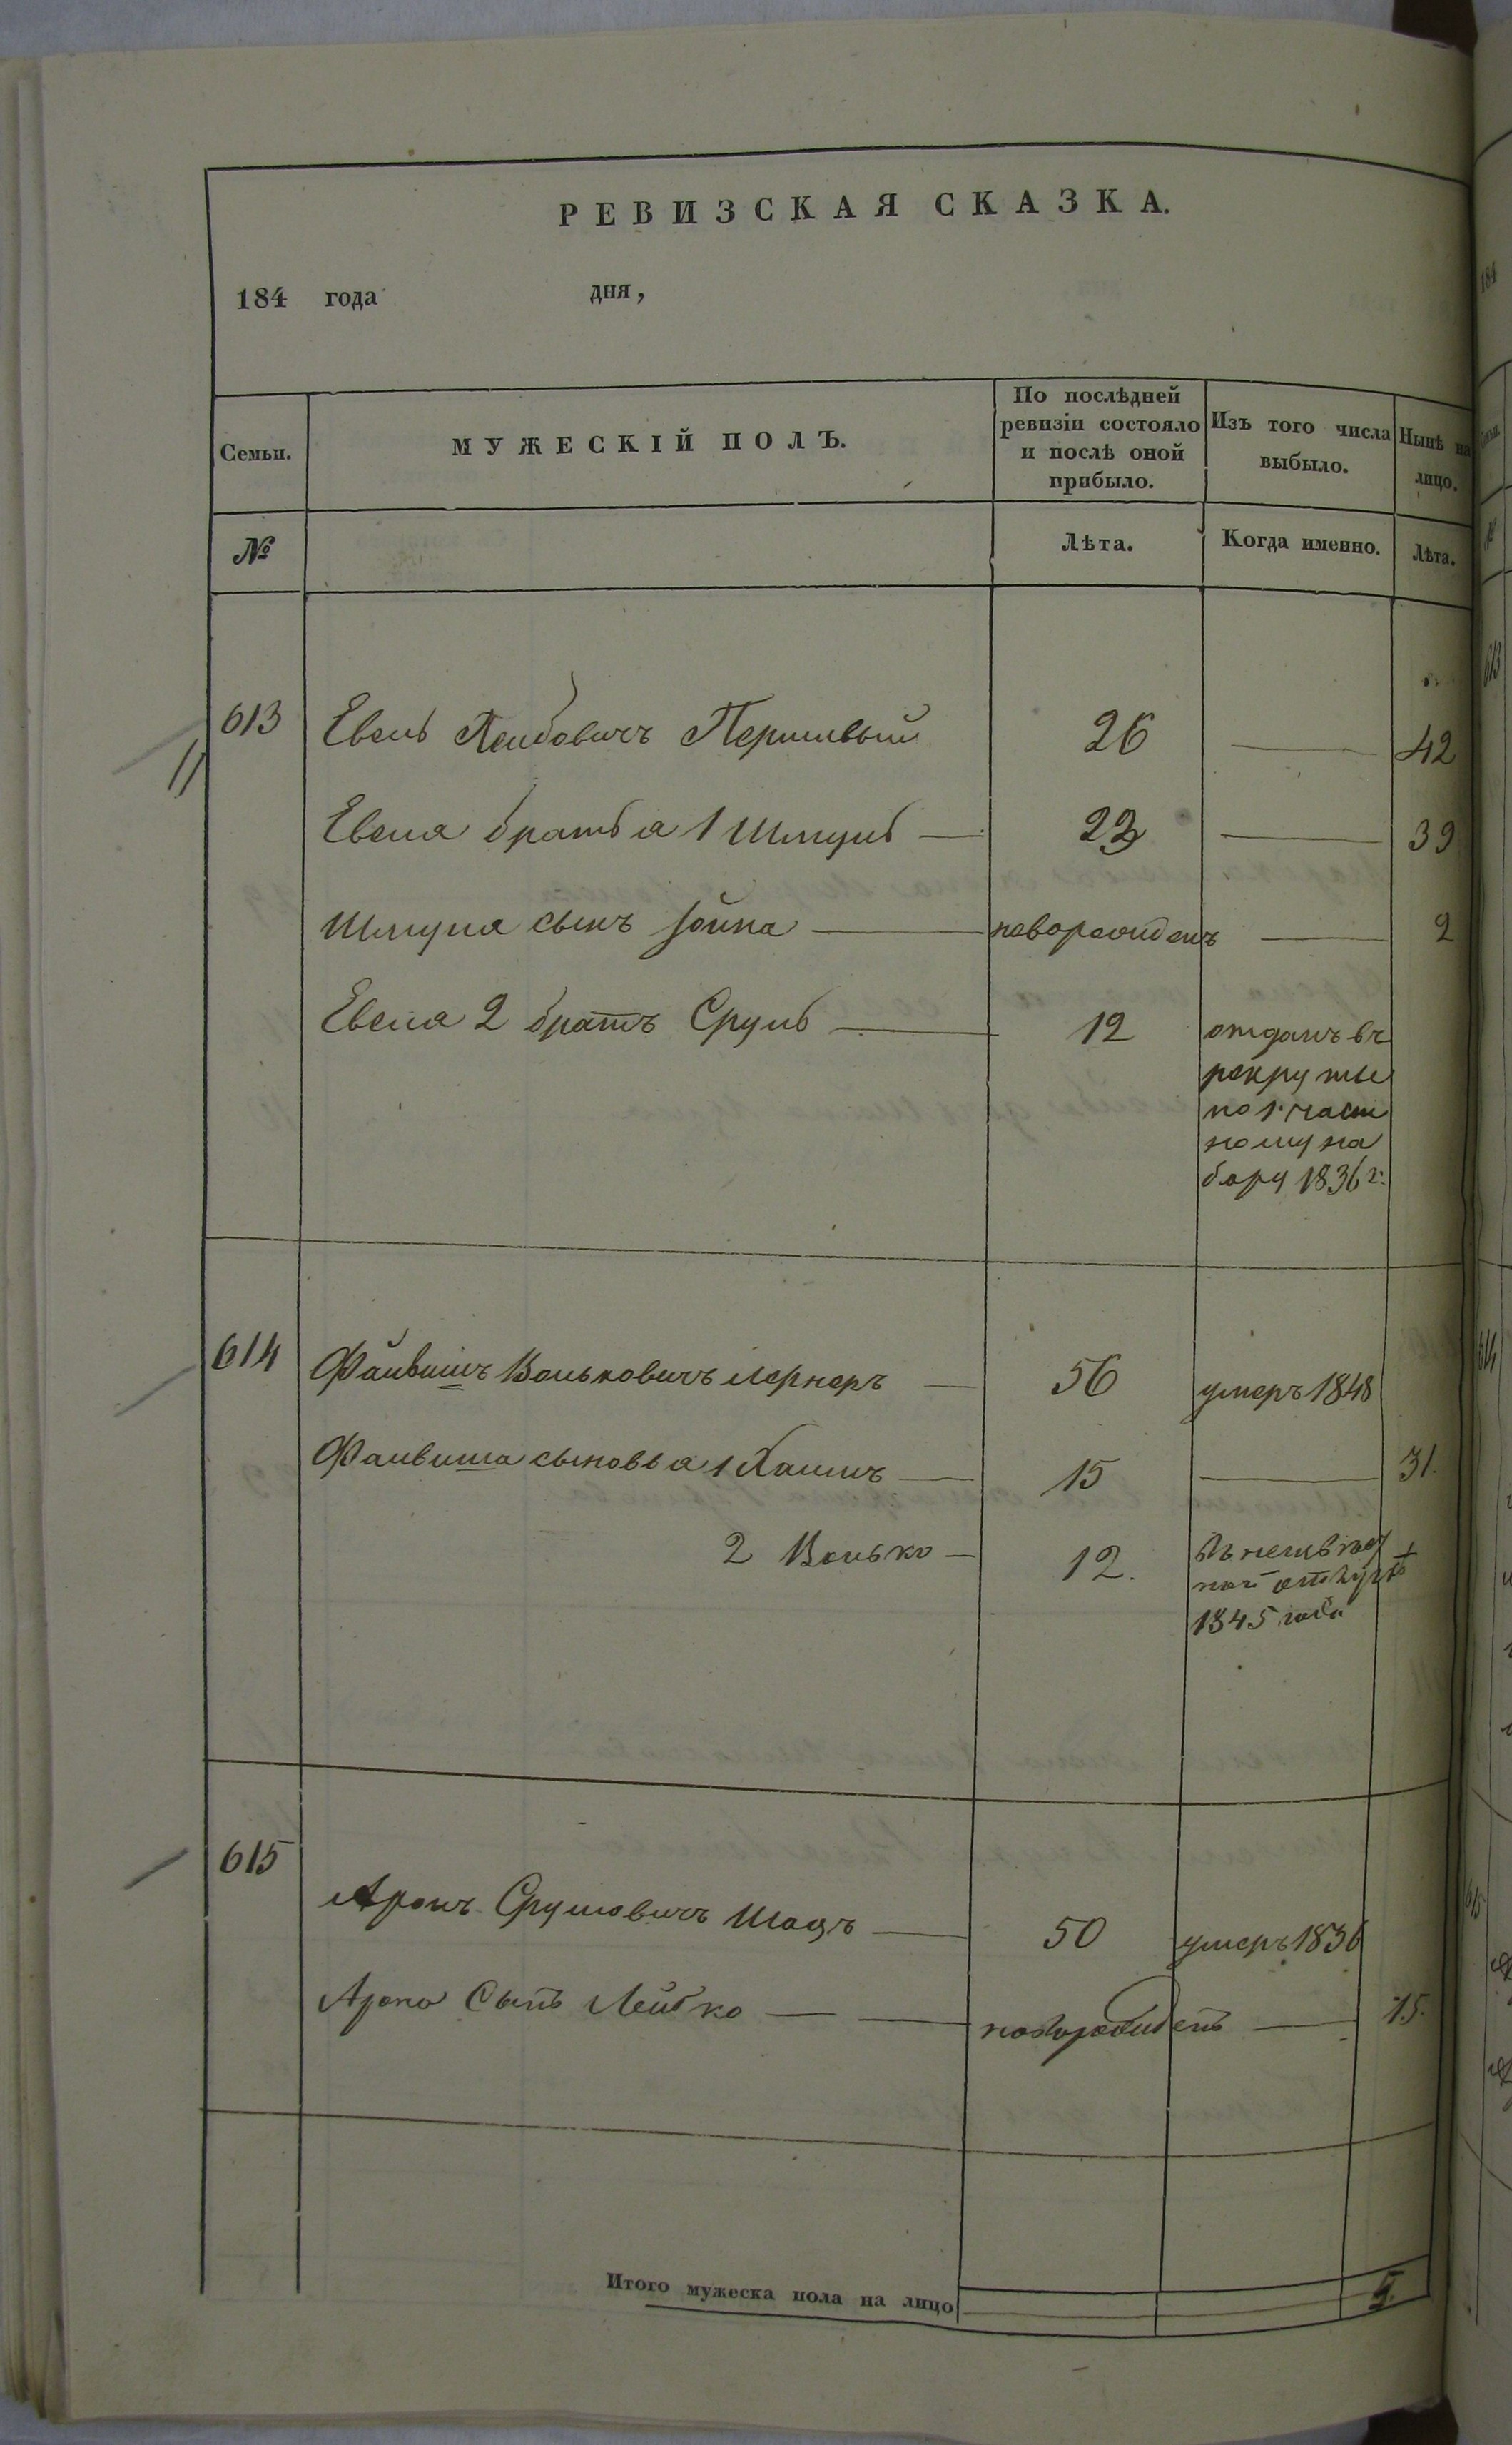 РЕВИЗСКАЯ СКАЗКА.
184 года дня,
Семьи. МУЖЕСКІЙ ПОЛЪ. По послѣдней ревизіи состояло и послѣ оной прибыло. Изъ того числа выбыло. Нынѣ на лицо.
№ Лѣта. Когда именно. Лѣта.
613 Евель Лейбовичъ 26 — 42
Евеля братья 1 Шмуль — 23 — 39
Шмуля сынъ Іойна — новорожденъ — 2
Евеля 2 братъ Сруль — 12 отданъ въ
рекруты
по 1 част
ному на
бору 1836 г:
614 Файвишъ Вольковичъ Лернеръ — 56 умеръ 1848
Файвиша сыновья 1 Хаимъ — 15 — 31.
2 Волько — 12.
1845 года
615 Аронъ Срулювичъ Шацъ — 50 умеръ 1836
Арона Сынъ Лейбко — — новорожденъ — 15.
Итого мужеска пола на лицо 5.